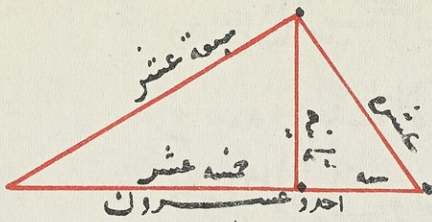 سبعة عشر
عشره
ثمنيه
خمسه عشر
سته
احد وعشرون